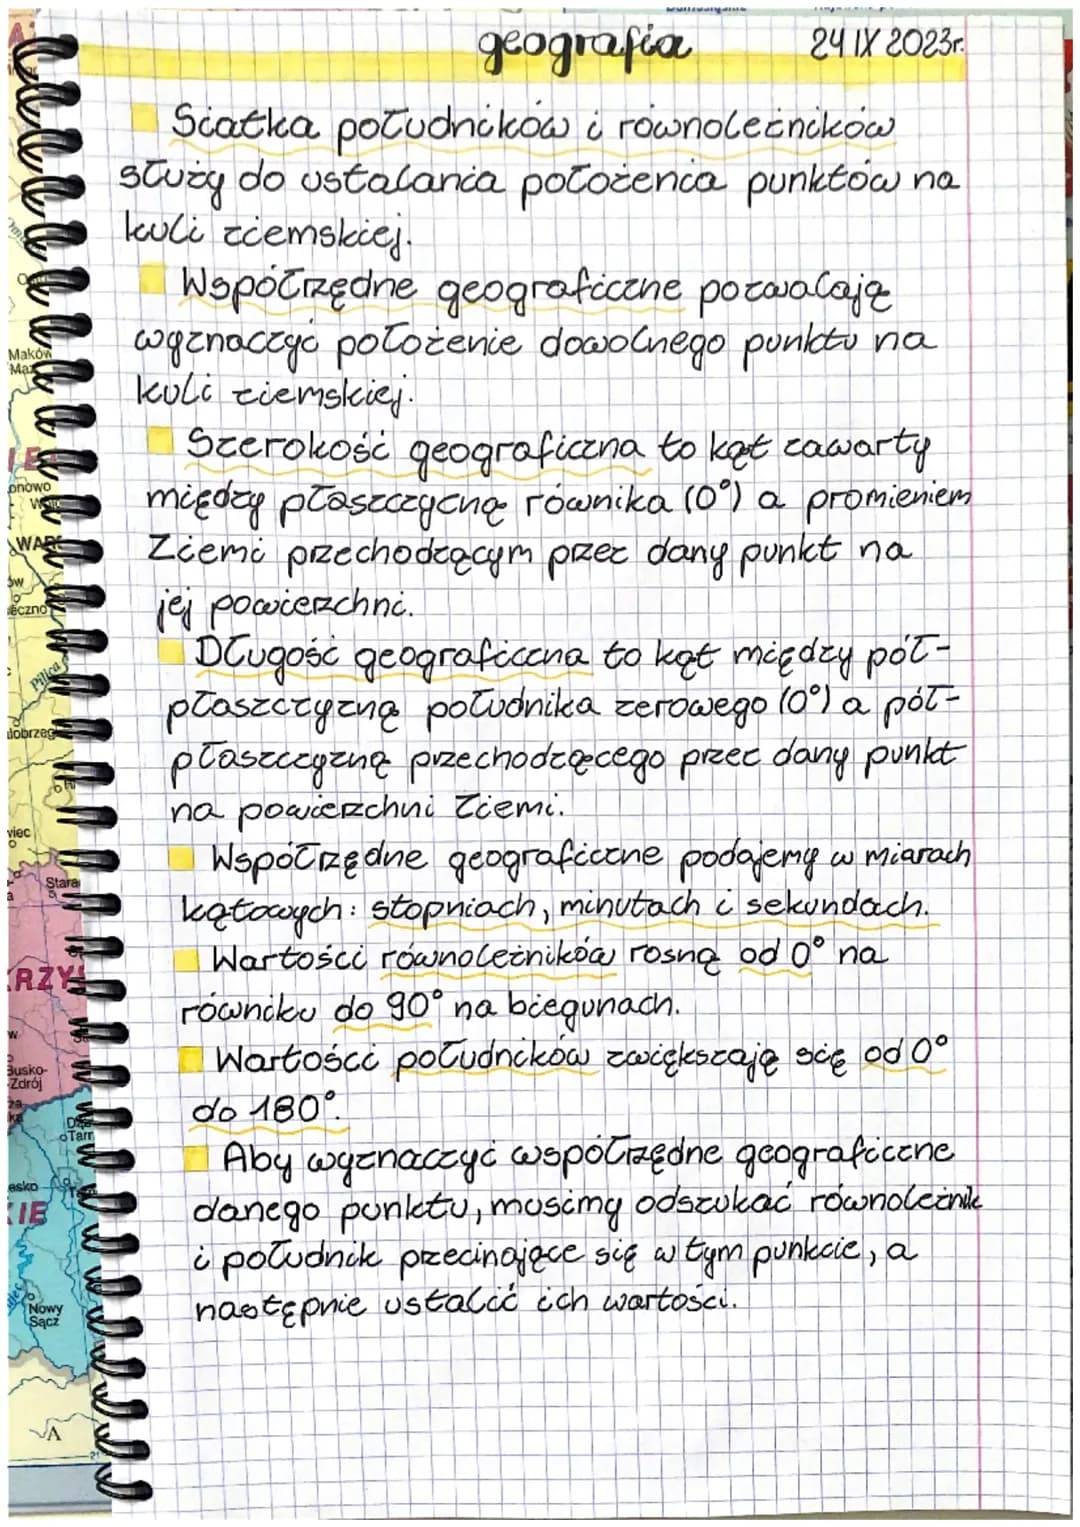 geografia 24 IX 2023r.
Siatka południków i równoleżników
służy do ustalania położenia punktów na
kuli ziemskiej.
Współrzędne geograficzne pozwalają
wyznaczyć położenie dowolnego punktu na
kuli ziemskiej.
Szerokość geograficzna to kąt zawarty
między płaszczyzną równika (0°) a promieniem
Ziemi przechodzącym przez dany punkt na
jej powierzchni.
Długość geograficzna to kąt między pół-
płaszczyzną południka zerowego (0°) a pół-
płaszczyzną przechodzącego przez dany punkt
na powierzchni Ziemi.
Współrzędne geograficzne podajemy w miarach
kątowych: stopniach, minutach i sekundach.
Wartości równoleżników rosną od 0° na
równiku do 90° na biegunach.
Wartości południków zwiększają się od 0°
do 180°.
Aby wyznaczyć współrzędne geograficzne
danego punktu, musimy odszukać równoleżnik
i południk przecinające się w tym punkcie, a
następnie ustalić ich wartości.
Maków
Pilica
Stara
Busko-
Zdrój
Nowy
Sącz